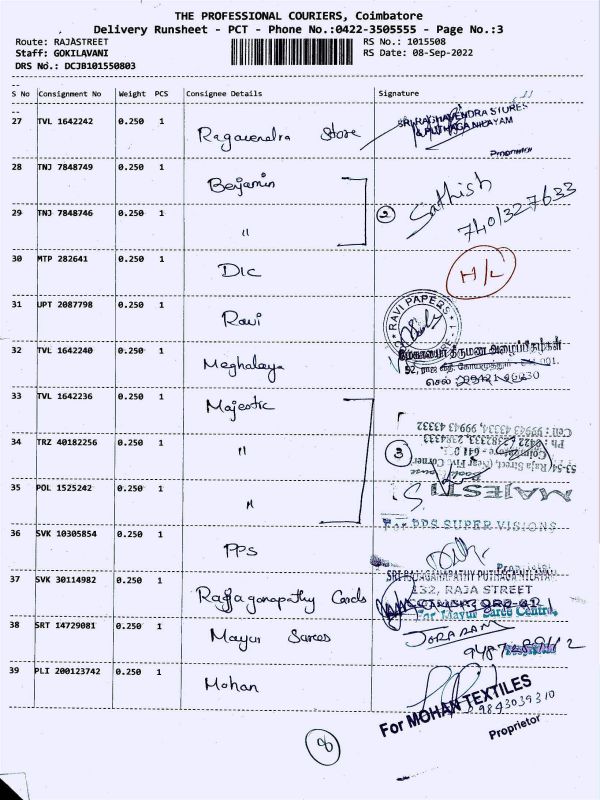 THE PROFESSIONAL COURIERS, Coimbatore
Delivery Runsheet - PCT - Phone No.:0422-3505555 - Page No.:3
Route: RAJASTREET RS No.: 1015508
Staff: GOKILAVANI RS Date: 08-Sep-2022
DRS No.: DCJB101550803
S No Consignment No Weight PCS Consignee Details Signature
27 TVL 1642242 0.250 1 Ragavendra Store
SRI RAGHAVENDRA STORES
& PUTHAGA NILAYAM
Proprietor
28 TNJ 7848749 0.250 1 Benjamin
Sathish
7401327633
29 TNJ 7848746 0.250 1 "
2
30 MTP 282641 0.250 1 DLC
H/L
31 UPT 2087798 0.250 1 Ravi
RAVI PAPERS
32 TVL 1642240 0.250 1 Meghalaya
திருமண அழைப்பிதழ்கள்
33 TVL 1642236 0.250 1 Majestic
Cell : 99943 43334, 99943 43332
34 TRZ 40182256 0.250 1 "
3
53-54, Raja Street, (Near Five Corner
35 POL 1525242 0.250 1 "
MAJESTI
For DDS SUPER VISIONS
36 SVK 10305854 0.250 1 PPS
37 SVK 30114982 0.250 1 Rajaganapathy Cards
SRI RAJAGANAPATHY PUTHAGA NILAYAM
132, RAJA STREET
For Mayur Saree Centre,
38 SRT 14729081 0.250 1 Mayur Sarees
JORARAM
39 PLI 200123742 0.250 1 Mohan
For MOHAN TEXTILES
9843039310
Proprietor
8